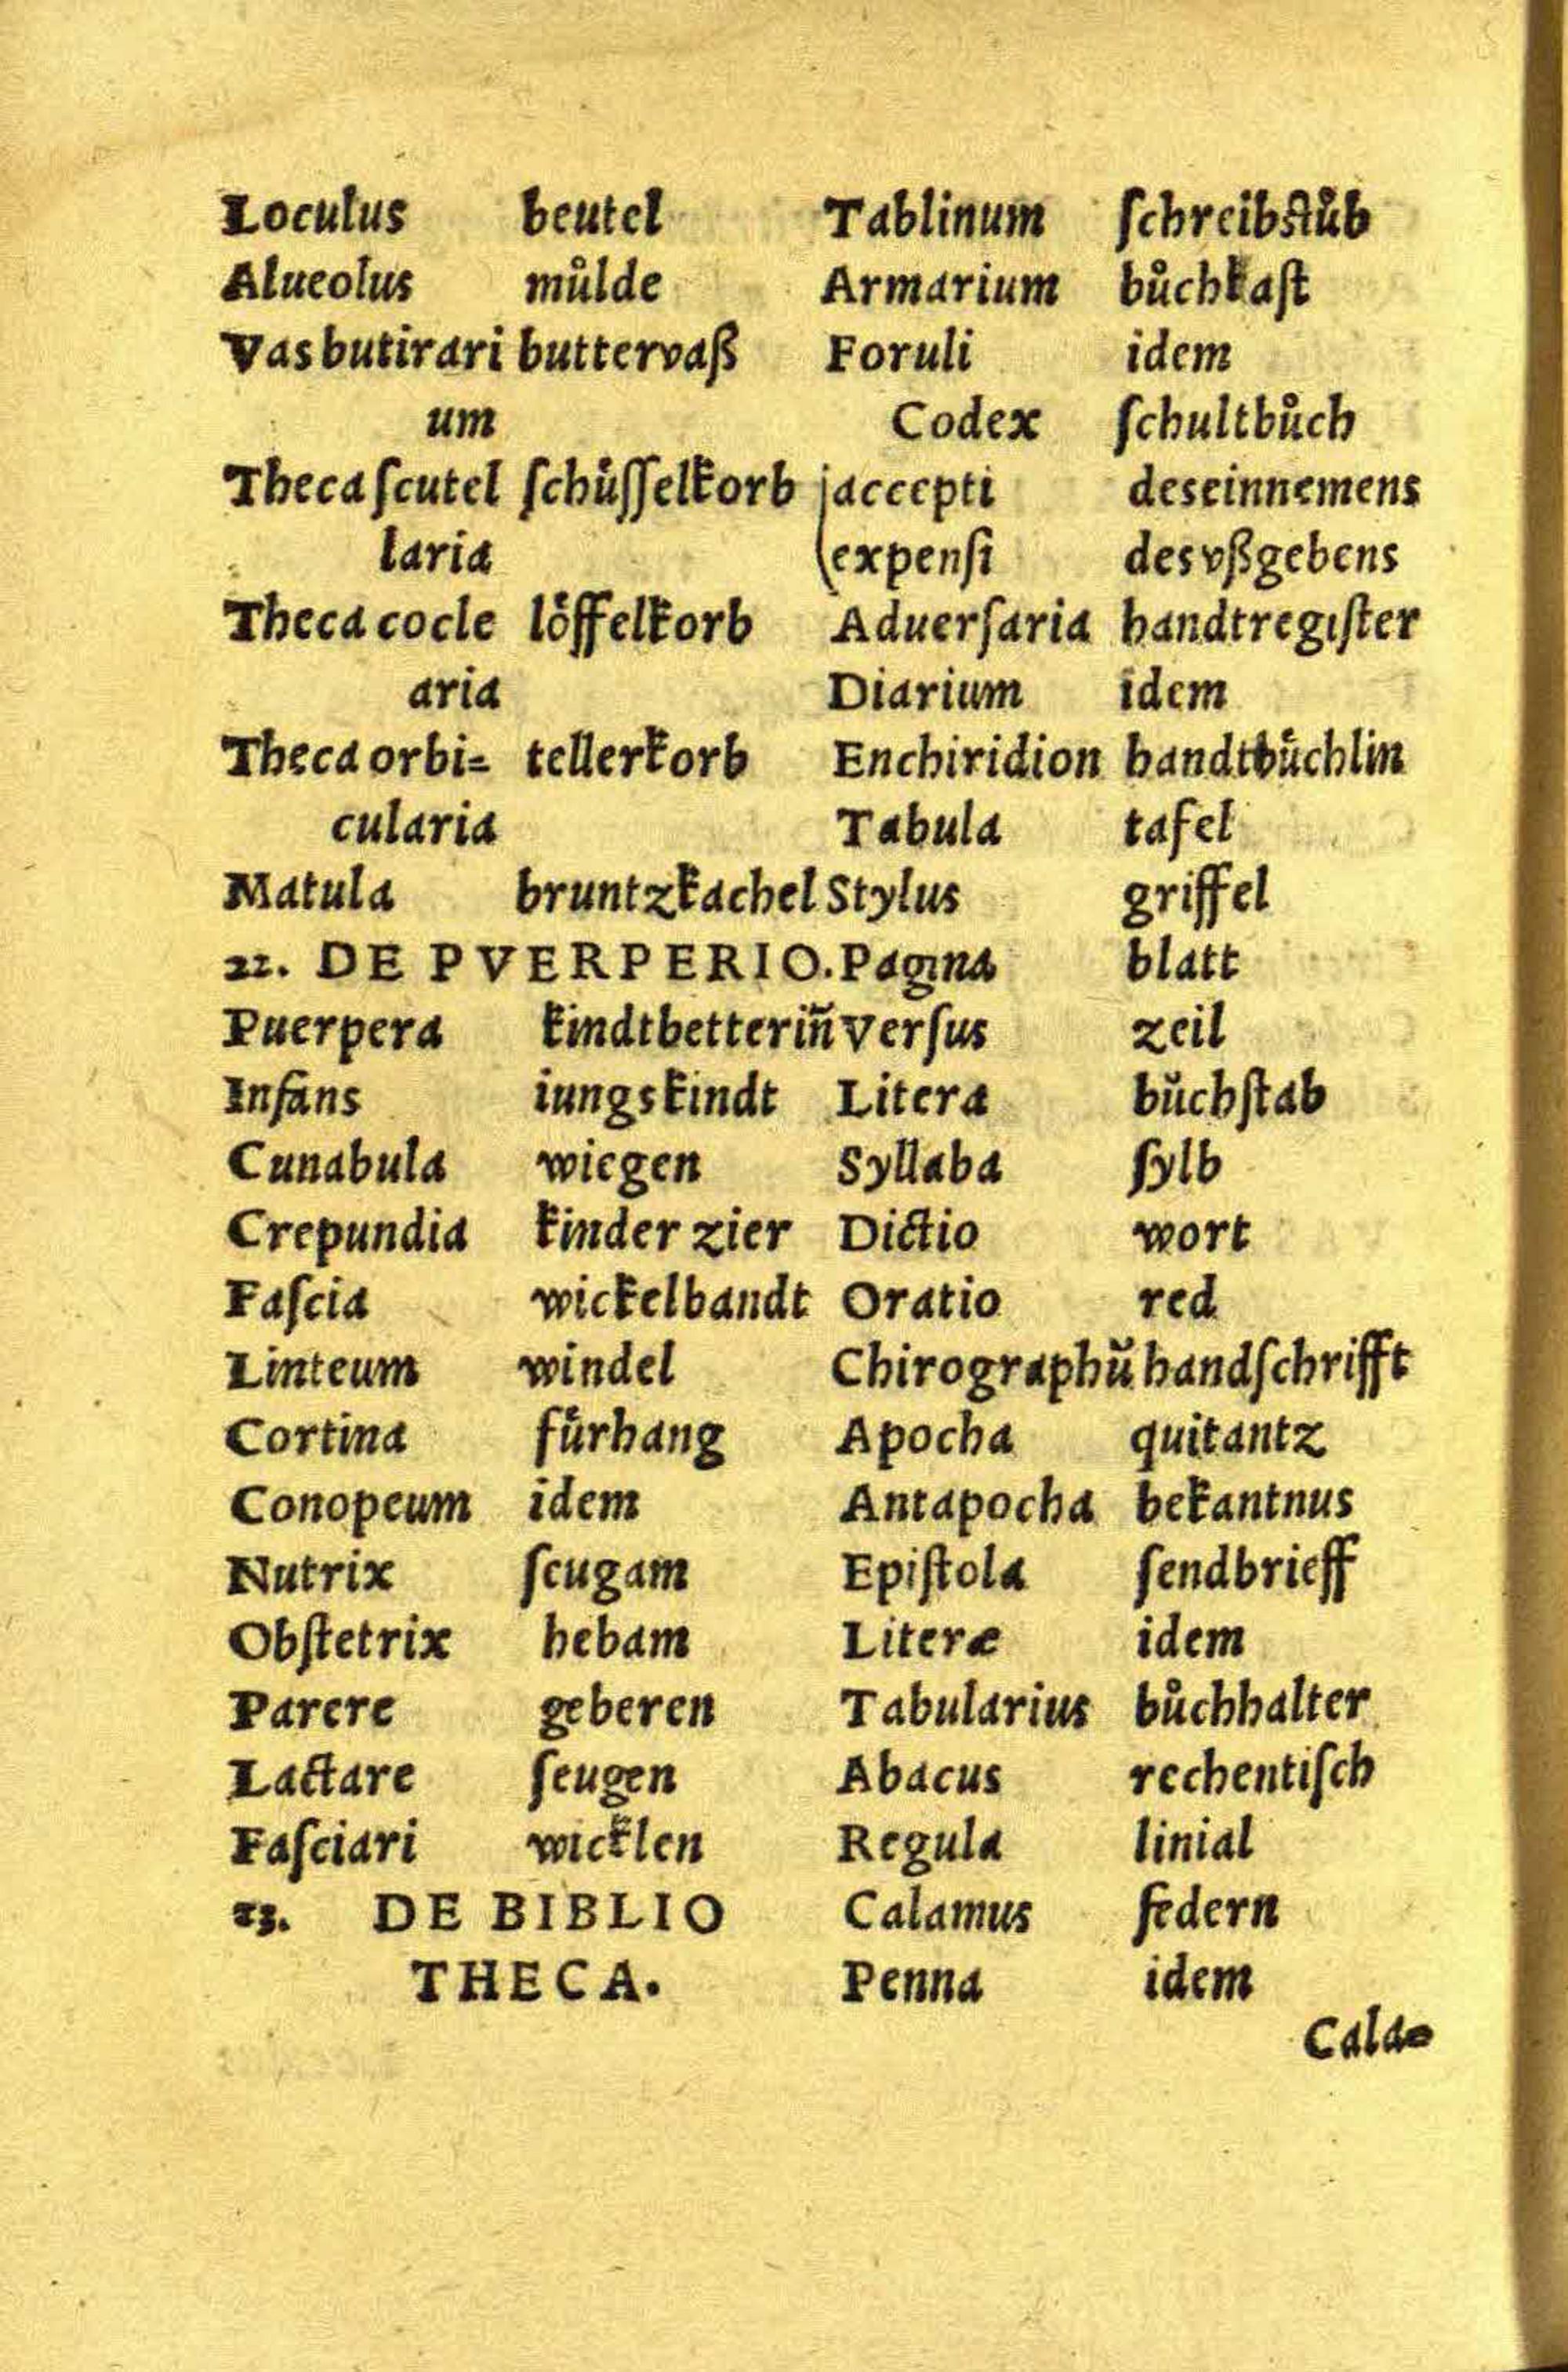 Loculus beutel
Alueolus můlde
Vas butirari buttervaß
um
Theca ſcutel ſchüſſelkorb
laria
Theca cocle löffelkorb
aria
Theca orbi= tellerkorb
cularia
Matula bruntzkachel
22. DE PVERPERIO.
Puerpera kindtbetterin̄
Infans iungs kindt
Cunabula wiegen
Crepundia kinder zier
Faſcia wickelbandt
Linteum windel
Cortina fürhang
Conopeum idem
Nutrix ſeugam
Obſtetrix hebam
Parere geberen
Lactare ſeugen
Faſciari wicklen
23. DE BIBLIO
THECA.
Tablinum ſchreibſtůb
Armarium bůchkaſt
Foruli idem
Codex ſchultbůch
accepti des einnemens
expenſi des vßgebens
Aduerſaria handtregiſter
Diarium idem
Enchiridion handtbüchlin
Tabula tafel
Stylus griffel
Pagina blatt
Verſus zeil
Litera bůchſtab
Syllaba ſylb
Dictio wort
Oratio red
Chirographū handſchrifft
Apocha quitantz
Antapocha bekantnus
Epiſtola ſendbrieff
Literæ idem
Tabularius bůchhalter
Abacus rechentiſch
Regula linial
Calamus federn
Penna idem
Cala=